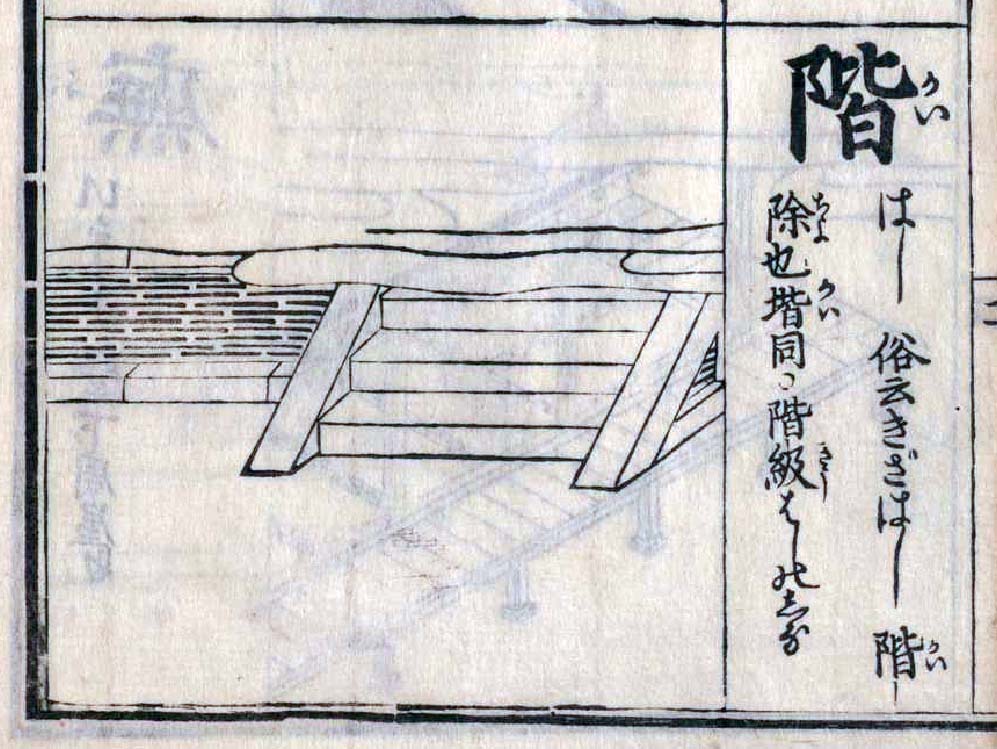 階かい
はし 俗云きざはし 階かい
除ぢよ也堦かい同。階級きうはしのしな